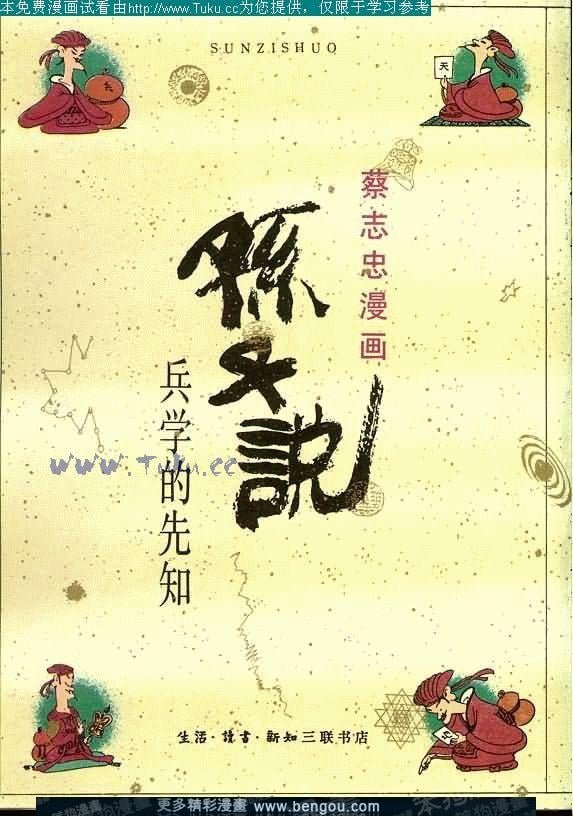 本免费漫画试看由http://www.Tuku.cc为您提供，仅限于学习参考
SUNZISHUO
天
蔡志忠漫画
孫子說
兵学的先知
www.Tuku.cc
生活·读书·新知三联书店
更多精彩漫畫 www.bengou.com